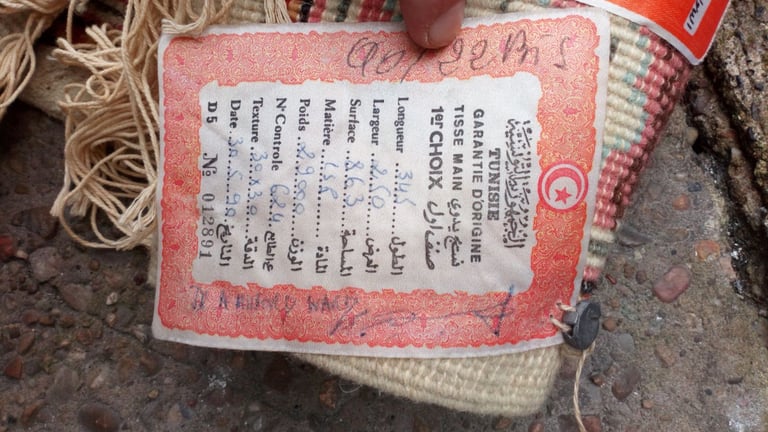 الجمهورية التونسية
TUNISIE
GARANTIE D'ORIGINE
TISSE MAIN نسيج يدوي
1er CHOIX صنف اول
Longueur 345 الطول
Largeur 250 العرض
Surface 863 المساحة
Matière المادة
Poids 29000 الوزن
N° Controle 624 ع الطابع
Texture 30x30 الدقة
Date 30.5.90 التاريخ
D5 No 012891